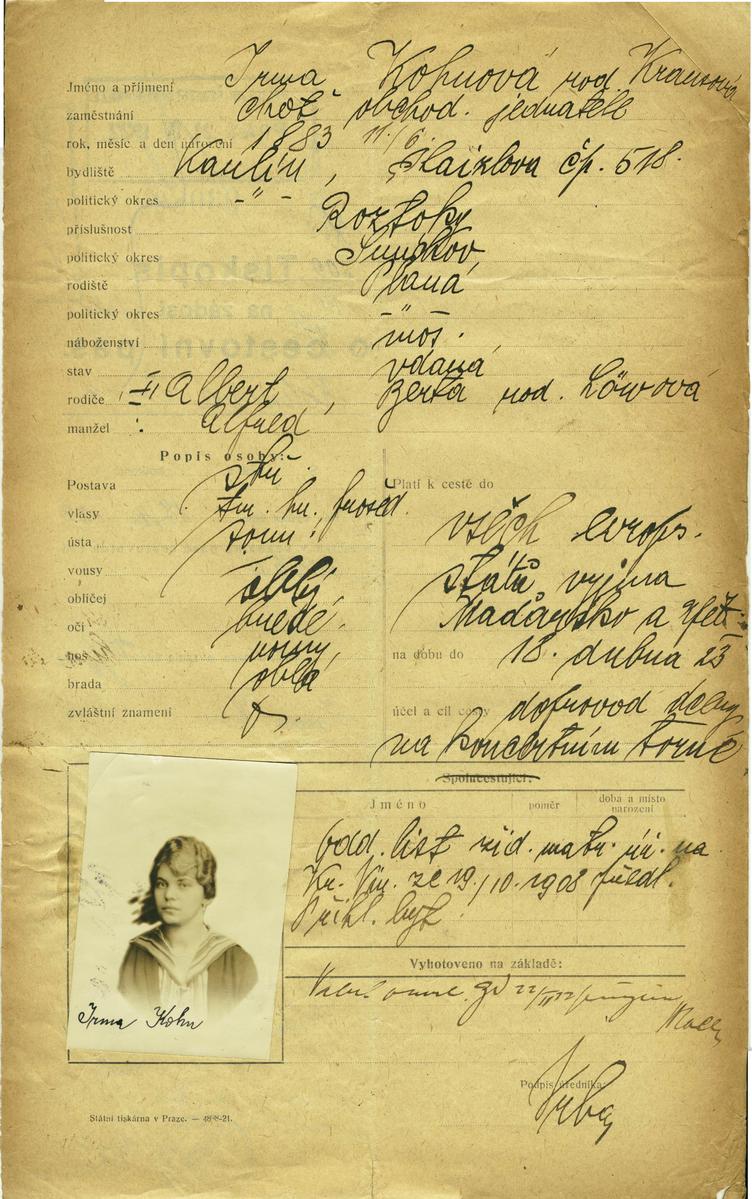 Jméno a příjmení Irma Kohnová rod. Krausová
zaměstnání choť obchod. jednatele
rok, měsíc a den narození 1883 11./6.
bydliště Karlín, čp. 518.
politický okres -"-
příslušnost Roztoky
politický okres Smíchov
rodiště Planá
politický okres -"-
náboženství mos.
stav vdaná
rodiče Albert, Berta rod. Löwová
manžel : Alfred
Popis osoby:
Postava stř.
vlasy tm. hn. prošed.
ústa
vousy
obličej oblý,
oči hnědé.
nos rovný,
brada oblá
zvláštní znamení
Platí k cestě do
všech evrops.
států vyjma
Maďarsko a
na dobu do 18. dubna 23
účel a cíl cesty doprovod dcery
na koncertním turné
Spolucestující:
Jméno poměr doba a místo narození
Odd. list žid. matr. úř. na
Kr. Vin. ze 19./10. 1908 předl.
Přihl. byt.
Vyhotoveno na základě:
Irma Kohn
Podpis úředníka:
Vrba
Státní tiskárna v Praze. —